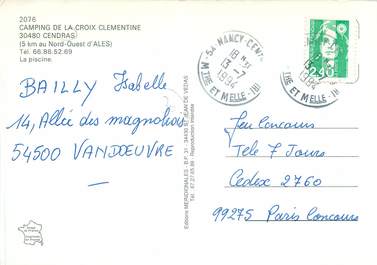 2076
CAMPING DE LA CROIX CLEMENTINE
30480 CENDRAS
(5 km au Nord-Ouest d'ALES)
Tél. 66.86.52.69
La piscine.
BAILLY Isabelle
14, Allée des magnolias
54500 VANDOEUVRE
Editions MERIDIONALES - B.P. 31 - 34430 ST JEAN DE VEDAS
Tél. 67.27.65.89 - Reproduction interdite
54 NANCY-CENT
18 H
13-7
1994
MTHE ET MELLE
13-7
1994
MTHE ET MELLE
2,40
Jeu Concours
Tele 7 Jours
Cedex 2760
99275 Paris Concours